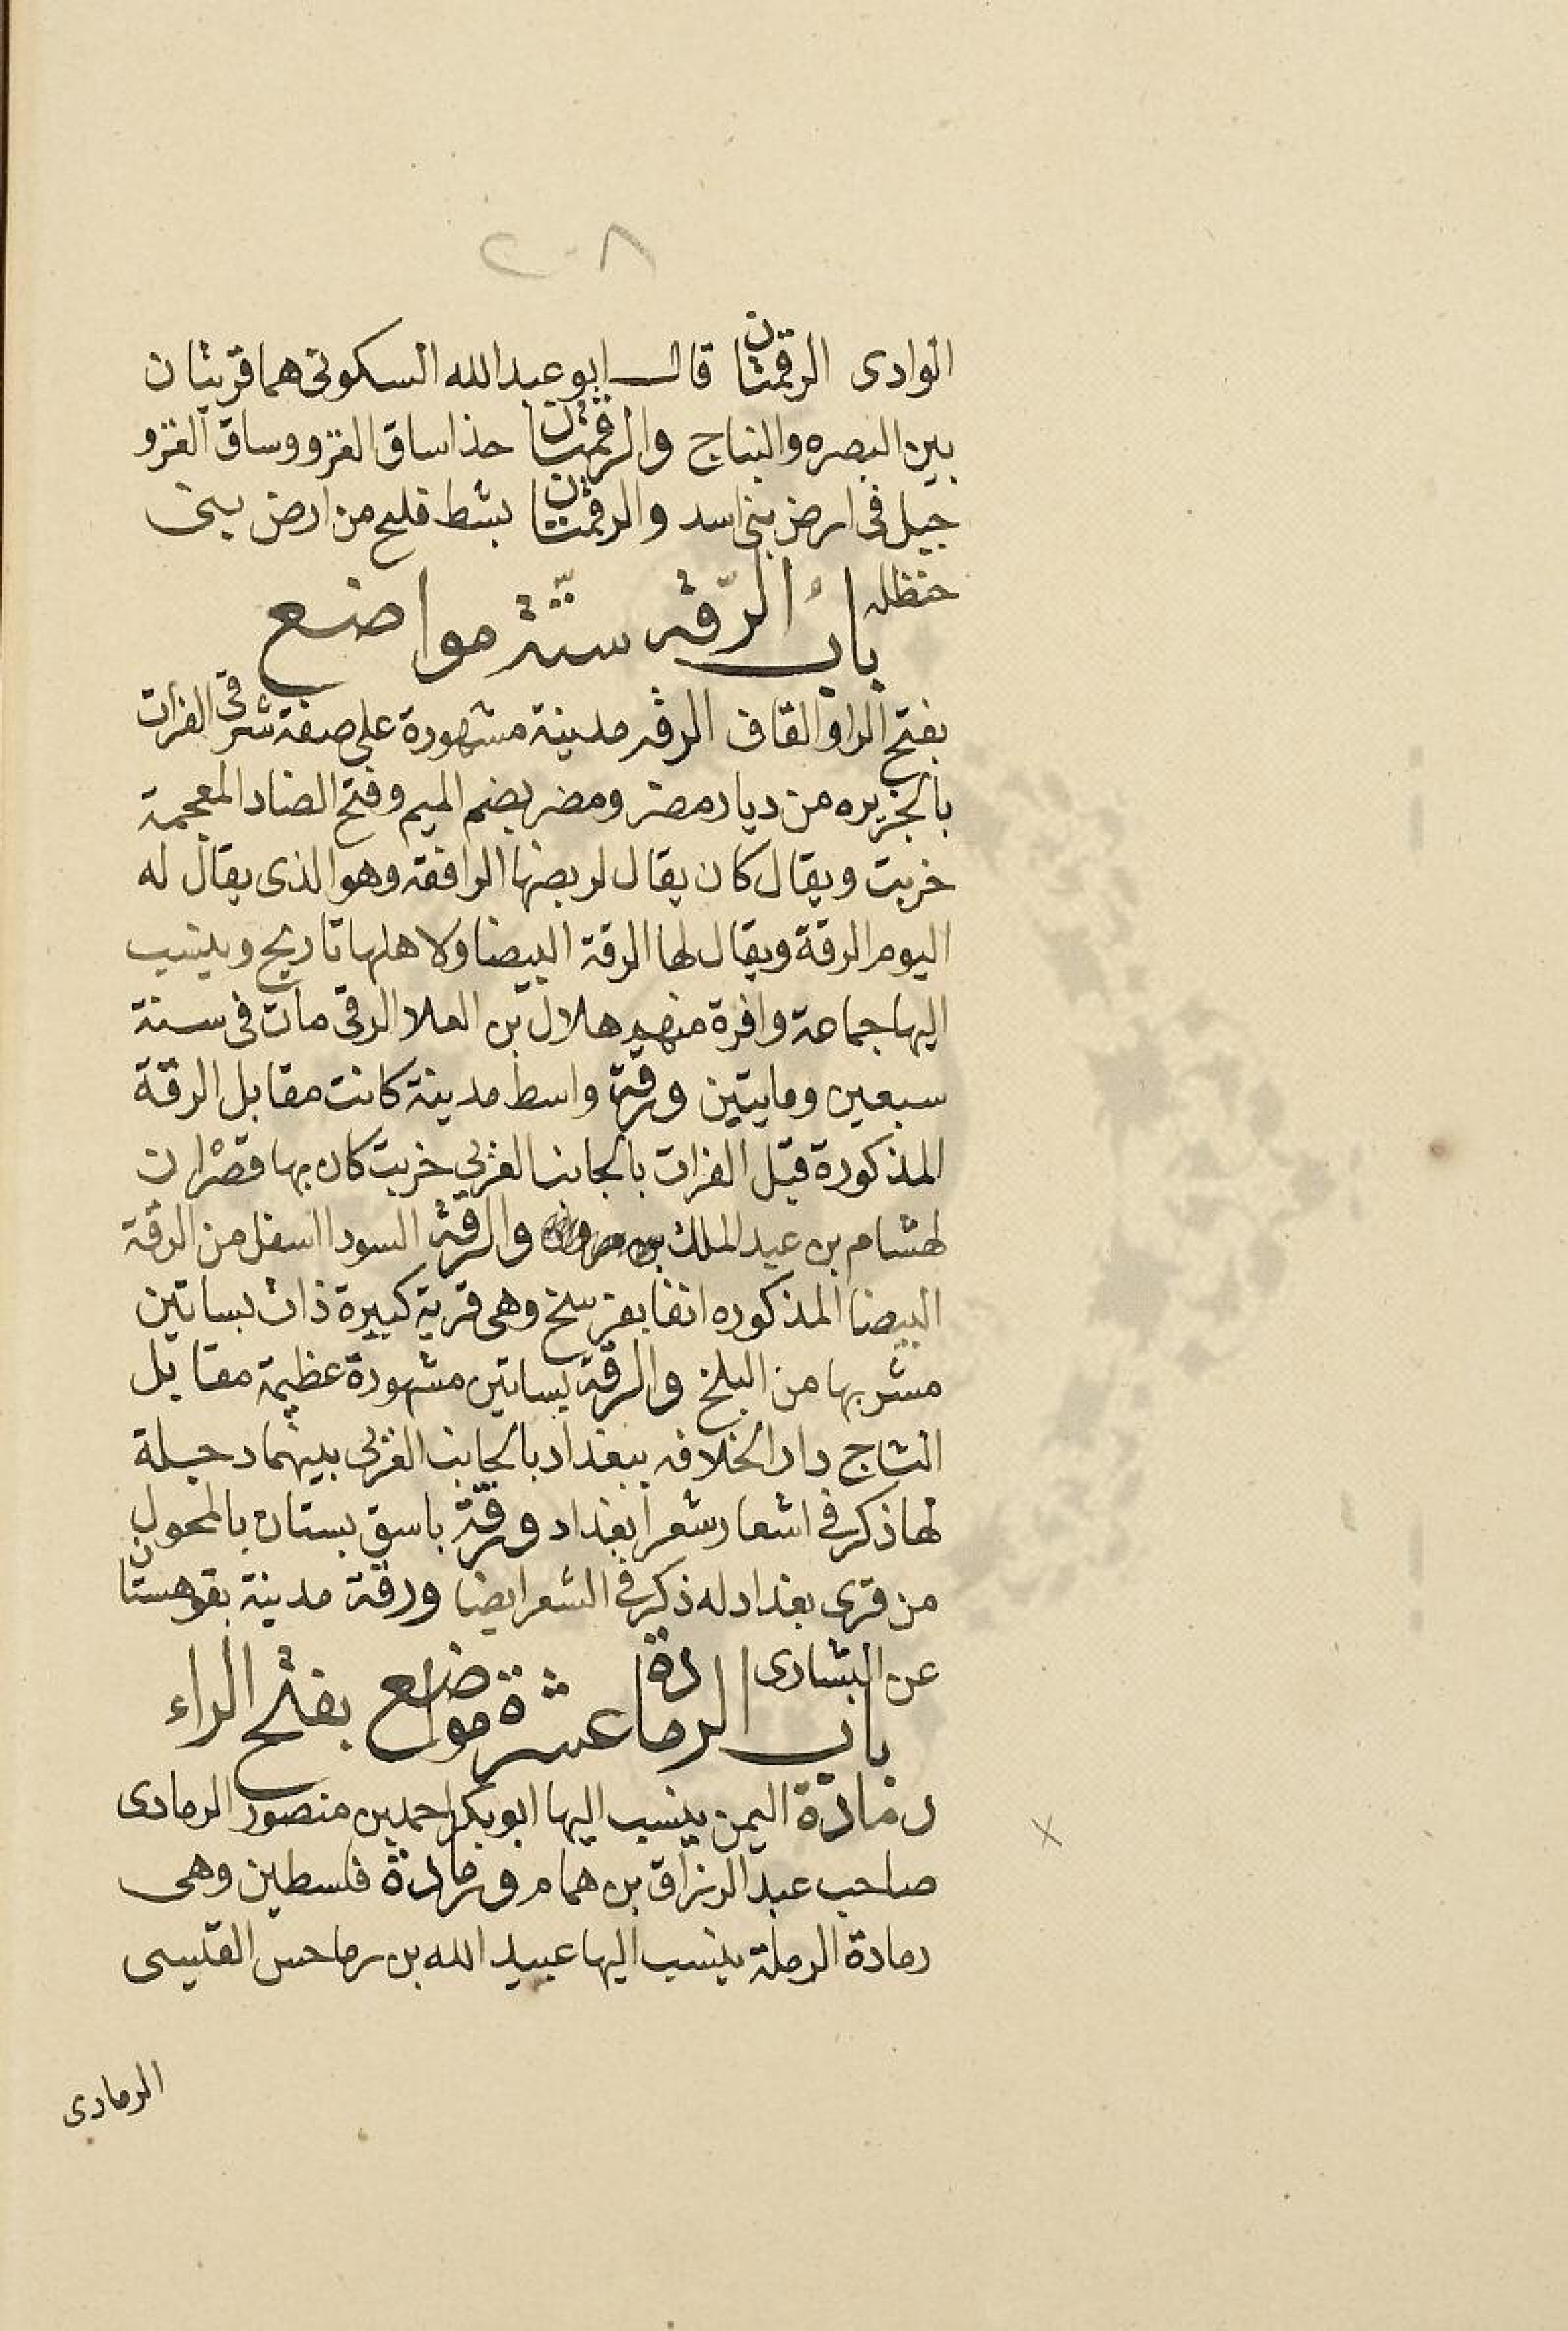 ٢٠٨
الوادى الرقمتان قال ابو عبد الله السكونى هما قريتان
بين البصره والنباج والرقمتان حذا ساق الغزو وساق الغزو
جبل فى ارض بنى اسد والرقمتان بشط فلج من ارض بنى
حنظله
باب الرّقه ستّة مواضع
بفتح الرا والقاف الرقه مدينة مشهورة على ضفة شرقى الفرات
بالجزيره من ديار مضر ومضر بضم الميم وفتح الضاد المعجمة
خربت ويقال كان يقال لربضها الرافقه وهو الذى يقال له
اليوم الرقة ويقال لها الرقة البيضا ولاهلها تاريخ وينسب
اليها جماعة وافرة منهم هلال بن العلا الرقى مات فى سنة
سبعين ومايتين ورقة واسط مدينة كانت مقابل الرقة
المذكورة قبل الفرات بالجانب الغربى خربت كان بها قصران
لهشام بن عبد الملك بن مروان والرقة السودا اسفل من الرقة
البيضا المذكوره انفا بفرسخ وهى قرية كبيرة ذات بساتين
مشربها من البلخ والرقة بساتين مشهورة عظيمة مقابل
التاج دار الخلافه ببغداد بالجانب الغربى بينهما دجلة
لها ذكر فى اشعار شعرا بغداد ورقة باسق بستان بالمحول
من قرى بغداد له ذكر فى الشعر ايضا ورقة مدينة بقوهستان
عن البشارى
باب الرمادة عشرة مواضع بفتح الراء
رمادة اليمن ينسب اليها ابو بكر احمد بن منصور الرمادى
صاحب عبد الرزاق بن همام ورمادة فلسطين وهى
رمادة الرملة ينسب اليها عبيد الله بن رماحس القيسى
الرمادى